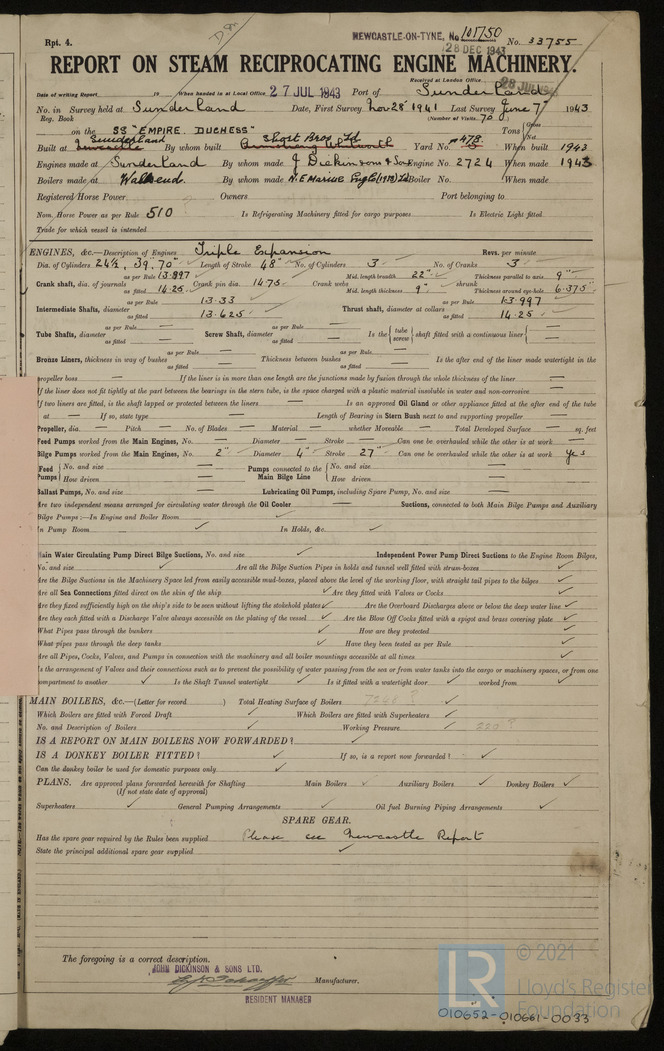 Rpt. 4.
NEWCASTLE-ON-TYNE, No. 101750 No. 33755
28 DEC 1943
REPORT ON STEAM RECIPROCATING ENGINE MACHINERY.
Received at London Office
Date of writing Report 19 When handed in at Local Office 27 JUL 1943 Port of Sunderland
No. in Survey held at Sunderland Date, First Survey Nov 28 1941 Last Survey June 7 1943
Reg. Book (Number of Visits 70)
on the SS "EMPIRE DUCHESS" Tons Gross Net
Built at Sunderland By whom built Short Bros Ltd Yard No. 478 When built 1943
Armstrong Whitworth
Engines made at Sunderland By whom made J Dickinson & Sons Engine No. 2724 When made 1943
Boilers made at Wallsend. By whom made N.E Marine Eng Co (1938) Ltd Boiler No. When made
Registered Horse Power Owners Port belonging to
Nom. Horse Power as per Rule 510 Is Refrigerating Machinery fitted for cargo purposes Is Electric Light fitted
Trade for which vessel is intended
ENGINES, &c.—Description of Engines Triple Expansion Revs. per minute
Dia. of Cylinders 24½, 39, 70 Length of Stroke 48" No. of Cylinders 3 No. of Cranks 3
Crank shaft, dia. of journals as per Rule 13.897 as fitted 14.25 Crank pin dia. 14.75 Crank webs Mid. length breadth 22" Mid. length thickness 9" shrunk Thickness parallel to axis 9" Thickness around eye-hole 6.375"
Intermediate Shafts, diameter as per Rule 13.33 as fitted 13.625 Thrust shaft, diameter at collars as per Rule 13.997 as fitted 14.25
Tube Shafts, diameter as per Rule — as fitted — Screw Shaft, diameter as per Rule — as fitted — Is the { tube screw } shaft fitted with a continuous liner {
Bronze Liners, thickness in way of bushes as per Rule — as fitted — Thickness between bushes as per Rule — as fitted — Is the after end of the liner made watertight in the
propeller boss — If the liner is in more than one length are the junctions made by fusion through the whole thickness of the liner —
If the liner does not fit tightly at the part between the bearings in the stern tube, is the space charged with a plastic material insoluble in water and non-corrosive —
If two liners are fitted, is the shaft lapped or protected between the liners — Is an approved Oil Gland or other appliance fitted at the after end of the tube
at — If so, state type — Length of Bearing in Stern Bush next to and supporting propeller —
Propeller, dia. — Pitch — No. of Blades — Material — whether Moveable — Total Developed Surface — sq. feet
Feed Pumps worked from the Main Engines, No. — Diameter — Stroke — Can one be overhauled while the other is at work —
Bilge Pumps worked from the Main Engines, No. 2 Diameter 4" Stroke 27" Can one be overhauled while the other is at work Yes
Feed Pumps { No. and size — How driven — Pumps connected to the Main Bilge Line { No. and size — How driven —
Ballast Pumps, No. and size — Lubricating Oil Pumps, including Spare Pump, No. and size —
Are two independent means arranged for circulating water through the Oil Cooler — Suctions, connected to both Main Bilge Pumps and Auxiliary
Bilge Pumps :—In Engine and Boiler Room ✓
In Pump Room ✓ In Holds, &c. ✓
Main Water Circulating Pump Direct Bilge Suctions, No. and size ✓ Independent Power Pump Direct Suctions to the Engine Room Bilges,
No. and size ✓ Are all the Bilge Suction Pipes in holds and tunnel well fitted with strum-boxes ✓
Are the Bilge Suctions in the Machinery Space led from easily accessible mud-boxes, placed above the level of the working floor, with straight tail pipes to the bilges ✓
Are all Sea Connections fitted direct on the skin of the ship ✓ Are they fitted with Valves or Cocks ✓
Are they fixed sufficiently high on the ship's side to be seen without lifting the stokehold plates ✓ Are the Overboard Discharges above or below the deep water line ✓
Are they each fitted with a Discharge Valve always accessible on the plating of the vessel ✓ Are the Blow Off Cocks fitted with a spigot and brass covering plate ✓
What Pipes pass through the bunkers ✓ How are they protected ✓
What pipes pass through the deep tanks ✓ Have they been tested as per Rule ✓
Are all Pipes, Cocks, Valves, and Pumps in connection with the machinery and all boiler mountings accessible at all times ✓
Is the arrangement of Valves and their connections such as to prevent the possibility of water passing from the sea or from water tanks into the cargo or machinery spaces, or from one
compartment to another ✓ Is the Shaft Tunnel watertight ✓ Is it fitted with a watertight door ✓ worked from ✓
MAIN BOILERS, &c.—(Letter for record ) Total Heating Surface of Boilers ✓
Which Boilers are fitted with Forced Draft ✓ Which Boilers are fitted with Superheaters ✓
No. and Description of Boilers ✓ Working Pressure ✓ 220 ?
IS A REPORT ON MAIN BOILERS NOW FORWARDED ? ✓
IS A DONKEY BOILER FITTED ? ✓ If so, is a report now forwarded ? ✓
Can the donkey boiler be used for domestic purposes only ✓
PLANS. Are approved plans forwarded herewith for Shafting Main Boilers ✓ Auxiliary Boilers ✓ Donkey Boilers ✓
(If not state date of approval)
Superheaters ✓ General Pumping Arrangements ✓ Oil fuel Burning Piping Arrangements ✓
SPARE GEAR.
Has the spare gear required by the Rules been supplied Please see Newcastle Report
State the principal additional spare gear supplied ✓
The foregoing is a correct description.
JOHN DICKINSON & SONS LTD.
Manufacturer.
RESIDENT MANAGER
© 2021
LR
Lloyd's Register
Foundation
010652-010661-0033